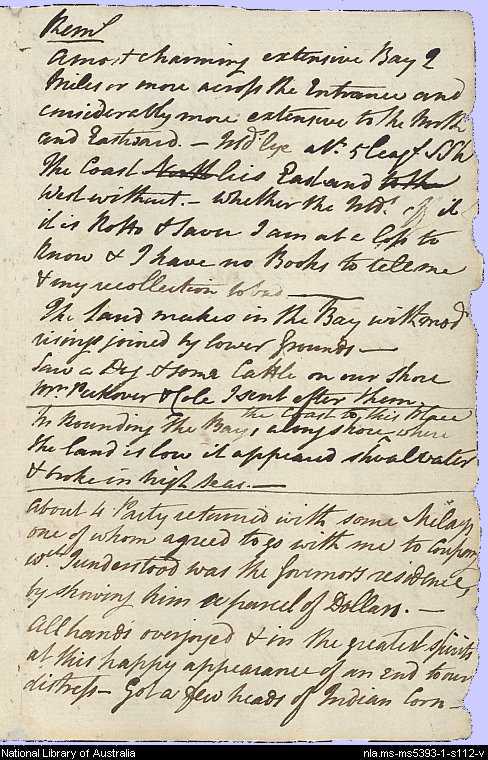 Reml
A most charming extensive Bay 2
Miles or more across the Entrance and
considerably more extensive to the North
and Eastward. — Wd. lye abt. 5 leags. SSW
The Coast lies East and
West without. — Whether the Isd. off it
it is Rotto & Savu I am at a loss to
know & I have no Books to tell me
& my recollection to bad
The Land makes in the Bay with mod
risings joined by lower Grounds —
Saw a Dog & some Cattle on our Shore
Mr. Peckover & Cole I sent after them.
the Coast to this place
In Rounding the Bay, along shore where
the land is low it appeared shoal water
& broke in high seas. —
About 4 Party returned with some Malays
one of whom agreed to go with me to Coupang
wh. I understood was the Governors residence,
by showing him a parcel of Dollars. —
All hands overjoyed & in the greatest spirits
at this happy appearance of an end to our
distress — Got a few heads of Indian Corn —
National Library of Australia
nla.ms-ms5393-1-s112-v